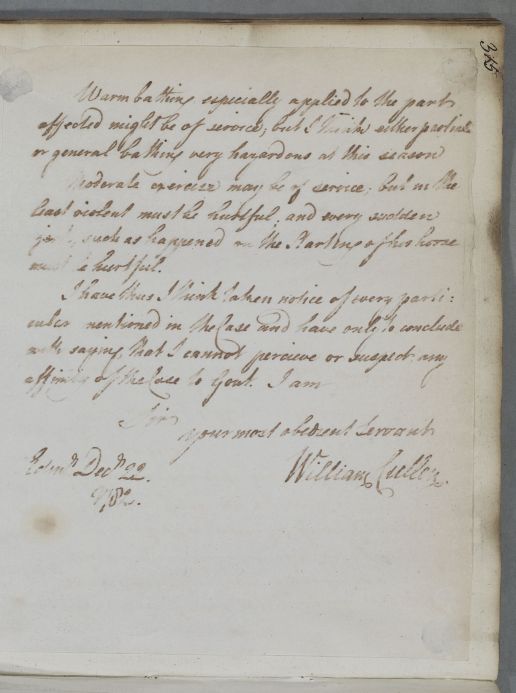 385
Warm bathing especially applied to the parts
affected might be of service, but I think either partial
or general bathing very hazardous at this season
Moderate exercise may be of service, but in the
least violent must be hurtful, and every sudden
such as happened on the starting of his horse
must be hurtful.
I have thus I think taken notice of every parti:
cular mentioned in the Case and have only to conclude
with saying, that I cannot percieve or suspect any
affinity of the Case to Gout. I am
Sir
your most obedient Servant
William Cullen.
Edinr. Decr. 22.
1782.